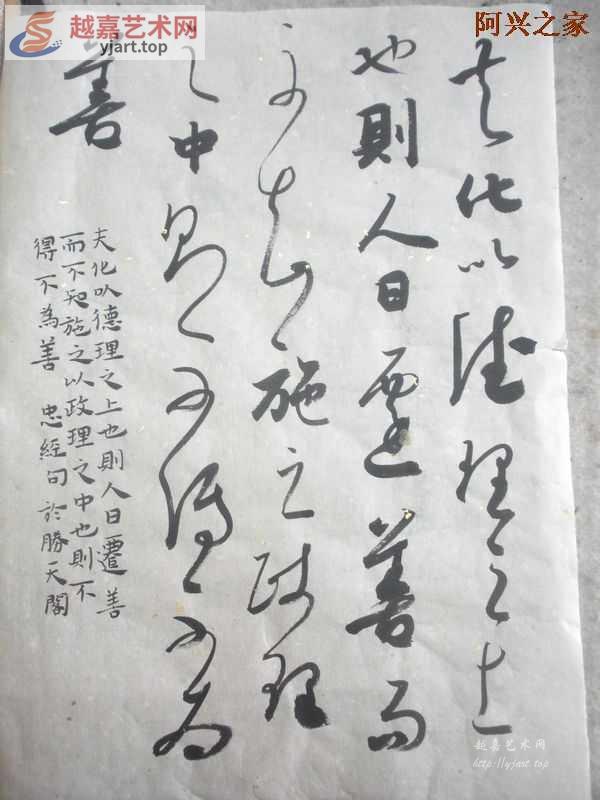 越嘉艺术网
yjart.top
阿兴之家
夫化以德理之上
也則人日遷善而
不知施之政理
之中則不得不為
善
夫化以德理之上也則人日遷善
而不知施之以政理之中也則不
得不為善 忠經句於勝天閣
越嘉艺术网
http://yjart.top